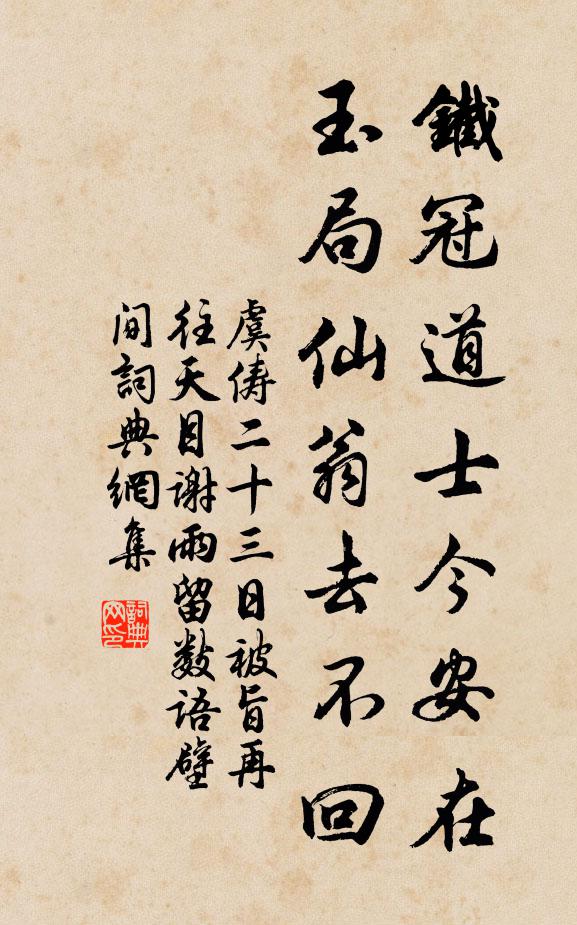 鐵冠道士今安在
玉局仙翁去不回
虞儔二十三日被旨再
往天目謝雨留數語壁
間詞典網集
詞典网印